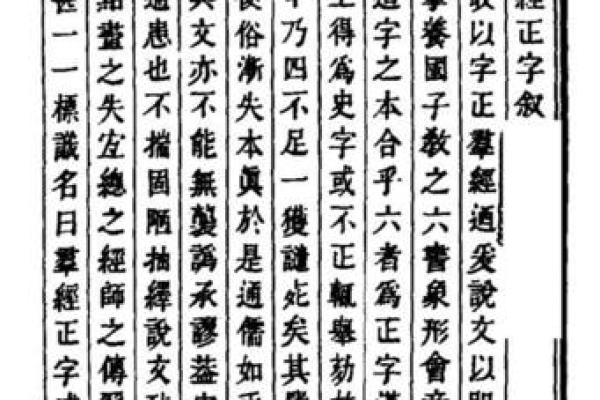 經正字叙
以字正羣經通爻說文以即
養國子教之六書象形會意
造字之本合乎六者爲正字漢
上得爲史字或不正輒舉劾故
乃四不足一獲譴死矣其
俗漸失本眞於是通儒如
文亦不能無襲譌承謬益
患也不揣固陋抽繹說文
點畫之失左總之經師之傳
一一標識名曰羣經正字